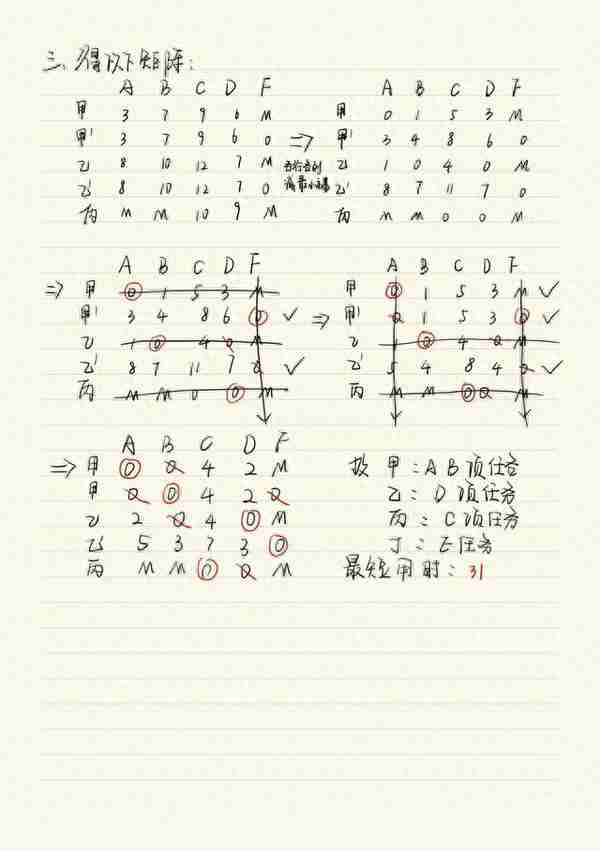 三、得以下矩阵:
A B C D F A B C D F
甲 3 7 9 6 M 甲 0 1 5 3 M
甲' 3 7 9 6 0 => 甲' 3 4 8 6 0
乙 8 10 12 7 M 各行各列 乙 1 0 4 0 M
乙' 8 10 12 7 0 减最小元素 乙' 8 7 11 7 0
丙 M M 10 9 M 丙 M M 0 0 M
A B C D F A B C D F
=> 甲 0 1 5 3 M 甲 0 1 5 3 M ✓
甲' 3 4 8 6 0 ✓ => 甲' 0 1 5 3 0 ✓
乙 1 0 4 0 M 乙 1 0 4 0 M
乙' 8 7 11 7 0 ✓ 乙' 5 4 8 4 0 ✓
丙 M M 0 0 M 丙 M M 0 0 M
A B C D F
=> 甲 0 0 4 2 M 故 甲:A B项任务
甲 0 0 4 2 0 乙:D项任务
乙 2 0 4 0 M 丙:C项任务
乙' 5 3 7 3 0 丁:E任务
丙 M M 0 0 M 最短用时:31